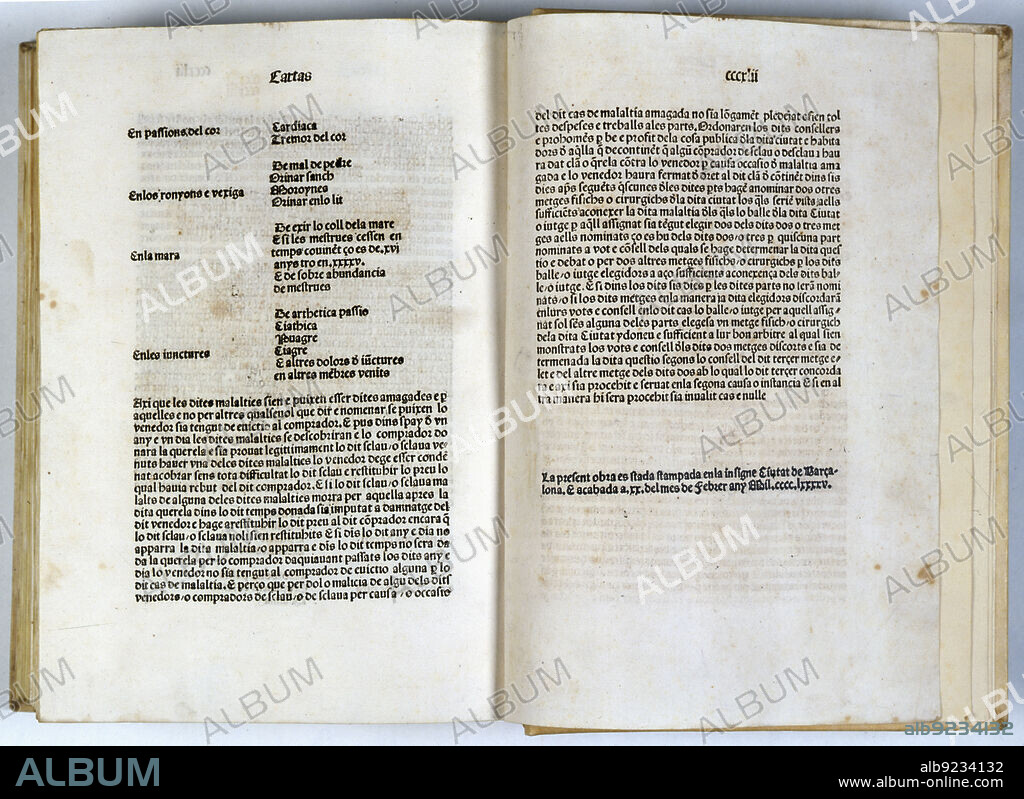 Cartas
En passions del cor
Cardiaca
Tremor del cor
De mal de pedre
Orinar sanch
Enlos ronyons e vexiga
Moroynes
Orinar enlo lit
De exir lo coll dela mare
E si les mestrues cessen en
temps couinēt ço es de .xvi
Enla mara
anys tro en .xxxx v.
E de sobre abundancia
de mestrues
De arthetica passio
Ciathica
Puagre
Enles iunctures
Ciagre
E altres dolors ð iūctures
en altres mēbres venits
Axi que les dites malalties sien e puixen esser dites amagades e p
aquelles e no per altres qualseuol que dit e nomenar se puixen lo
venedor sia tengut de euictio al comprador. E pus dins spay ð vn
any e vn dia les dites malalties se descobriran e lo comprador do
nara la querela e sia prouat legittimament lo dit sclau/o sclaua ve-
nuts hauer vna deles dites malalties lo venedor dege esser condē
nat acobrar sens tota difficultat lo dit sclau e restituhir lo preu lo
qual haura rebut del dit comprador. E si lo dit sclau/o sclaua ma
lalts de alguna deles dites malalties morra per aquella apres la
dita querela dins lo dit temps donada sia imputat a damnatge del
dit venedor e hage arestituhir lo dit preu al dit cōprador encara q̄
lo dit sclau/o sclaua noli sien restituhits E si dīs lo dit any e dia no
apparra la dita malaltia/o apparra e dīs lo dit temps no sera da
da la querela per lo comprador daquiauant passats los dits any e
dia lo venedor no sia tengut al comprador de euictio alguna p lo
dit cas de malaltia. E perço que per dol o malicia de algu dels dits
venedors/o compradors de sclau/o de sclaua per causa /o occasio
cccxlii
del dit cas de malaltia amagada no sia lōgamēt pledejat e sien tol
tes despeses e treballs ales parts. Ordonaren los dits consellers
e prohomēs p be e profit dela cosa publica ðla dita ciutat e habita
dors ð aq̄lla q̄ decontinēt q̄ algū cōprador de sclau o desclaua hau
ra dat clā o q̄rela cōtra lo venedor p causa occasio ð malaltia ama
gada e lo venedor haura fermat ð dret al dit clā ð cōtinēt dins sis
dies apēs seguēts q̄scunes ðles dites pts hagē anominar dos otres
metges fisichs o cirurgichs ðla dita ciutat los q̄ls seriē vists aells
sufficiēts aconexer la dita malaltia ðls q̄ls lo balle ðla dita Ciutat
o iutge p aq̄ll assignat sia tēgut elegir dos dels dits dos o tres met
ges aells nominats ço es hu dels dits dos/o tres p quiscuna part
nominats a vote cōsell dels quals se hage determenar la dita ques
tio e debat o per dos altres metges fisichs/o cirurgichs p los dits
balle/o iutge elegidors a aço sufficients aconexença dels dits bal-
le/o iutge. E si dins los dits sis dies p les dites parts no serā nomi
nats/o si los dits metges enla manera ja dita elegidors discordarā
enlurs vots e consell enlo dit cas lo balle/o iutge per aquell assig-
nat sol sēs alguna deles parts elegesa vn metge fisich/o cirurgich
dela dita Ciutat ydoneu e sufficient a lur bon arbitre al qual sien
monstrats los vots e consell ðls dits dos metges discorts e sia de
termenada la dita questio segons lo consell del dit terçer metge e-
let e del altre metge dels dos ab lo qual lo dit terçer concorda
ra e axi sia procehit e seruat enla segona causa o instancia E si en al
tra manera hi sera procehit sia inualit cas e nulle
La present obra es stada stampada enla insigne Ciutat de Barça-
lona. E acabada a .xx. del mes de Febrer any Mil.cccc.lxxxxv.
ALBUM
alb9234132
ALBUM
alb9234132
www.album-online.com